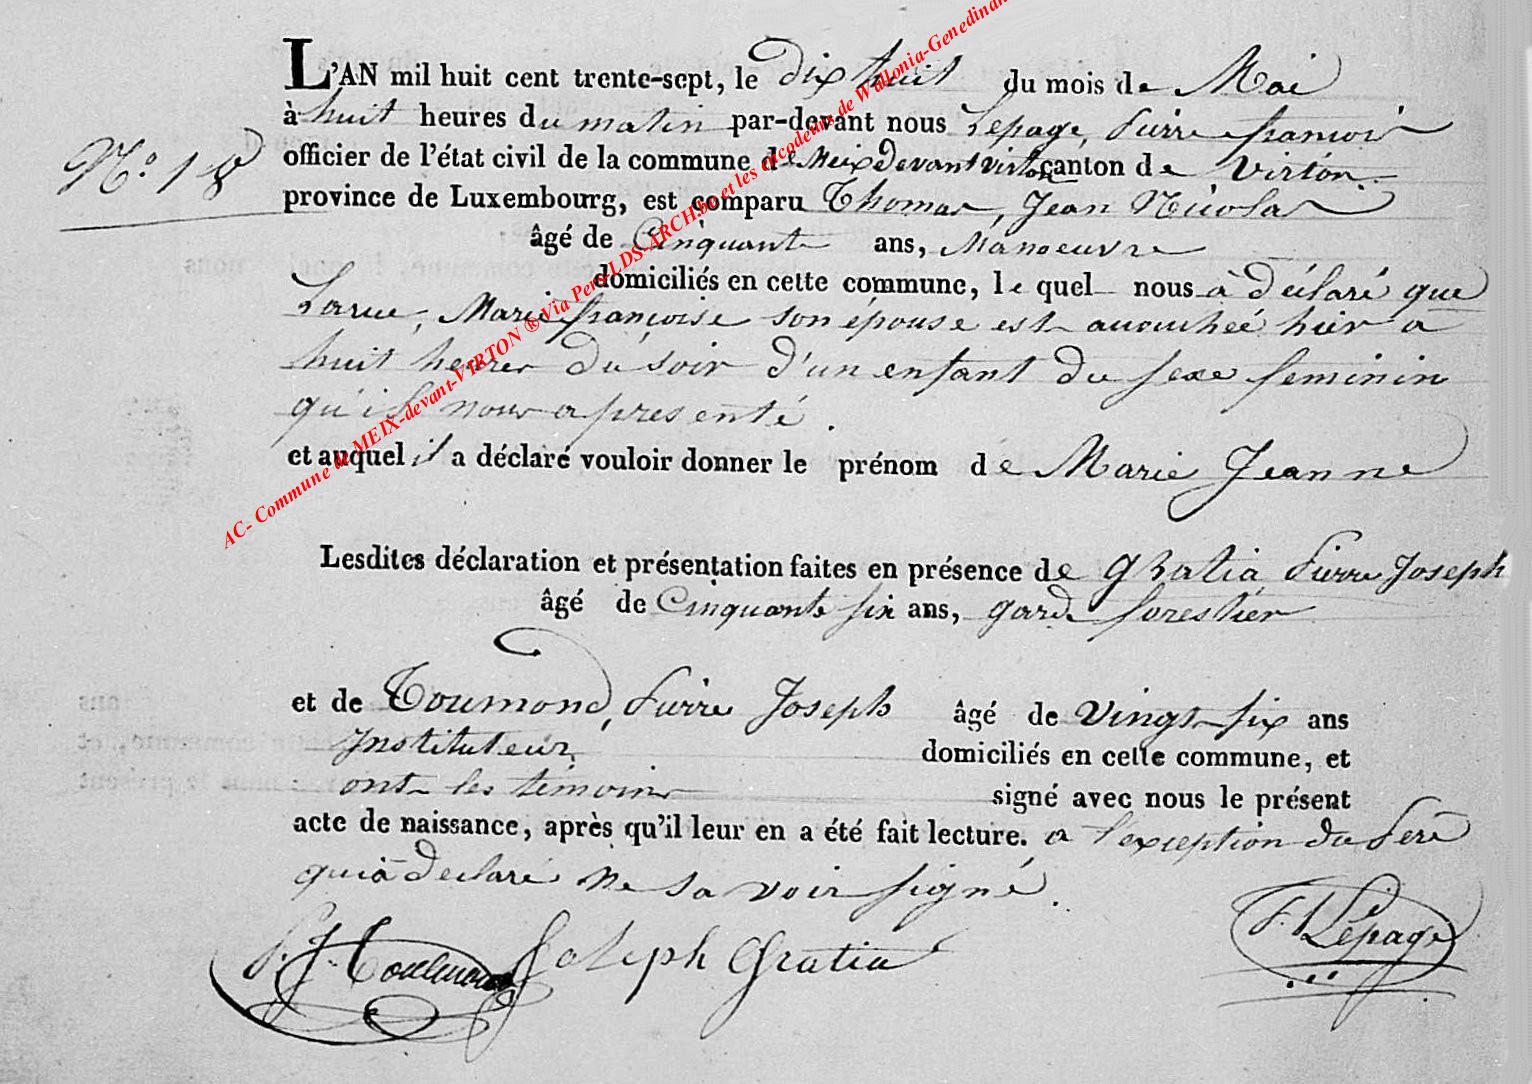 L'AN mil huit cent trente-sept, le dix huit du mois de Mai
à huit heures du matin par-devant nous Lepage, Pierre françois
N.° 18
officier de l'état civil de la commune de Meix Devant virton canton de Virton
province de Luxembourg, est comparu Thomas, Jean Nicolas
âgé de Cinquante ans, Manoeuvre
domiciliés en cette commune, le quel nous à déclaré que
Larue, Marie françoise son épouse est accouchée hier a
huit heures du soir d'un enfant du sexe feminin
qu'il nous a presenté.
et auquel il a déclaré vouloir donner le prénom de Marie Jeanne
Lesdites déclaration et présentation faites en présence de Gratia Pierre Joseph
âgé de Cinquante six ans, garde forestier
et de Toumond, Pierre Joseph âgé de vingt six ans
Instituteur, domiciliés en cette commune, et
ont les témoins signé avec nous le présent
acte de naissance, après qu'il leur en a été fait lecture. a l'exception du Père
qui à declaré ne savoir signé.
P. J. Joseph Gratia F. Lepage
AC- Commune de MEIX-devant-VIRTON ® Via Pers-LDS-ARCH.be et les encodeurs de Wallonia-Genedinan